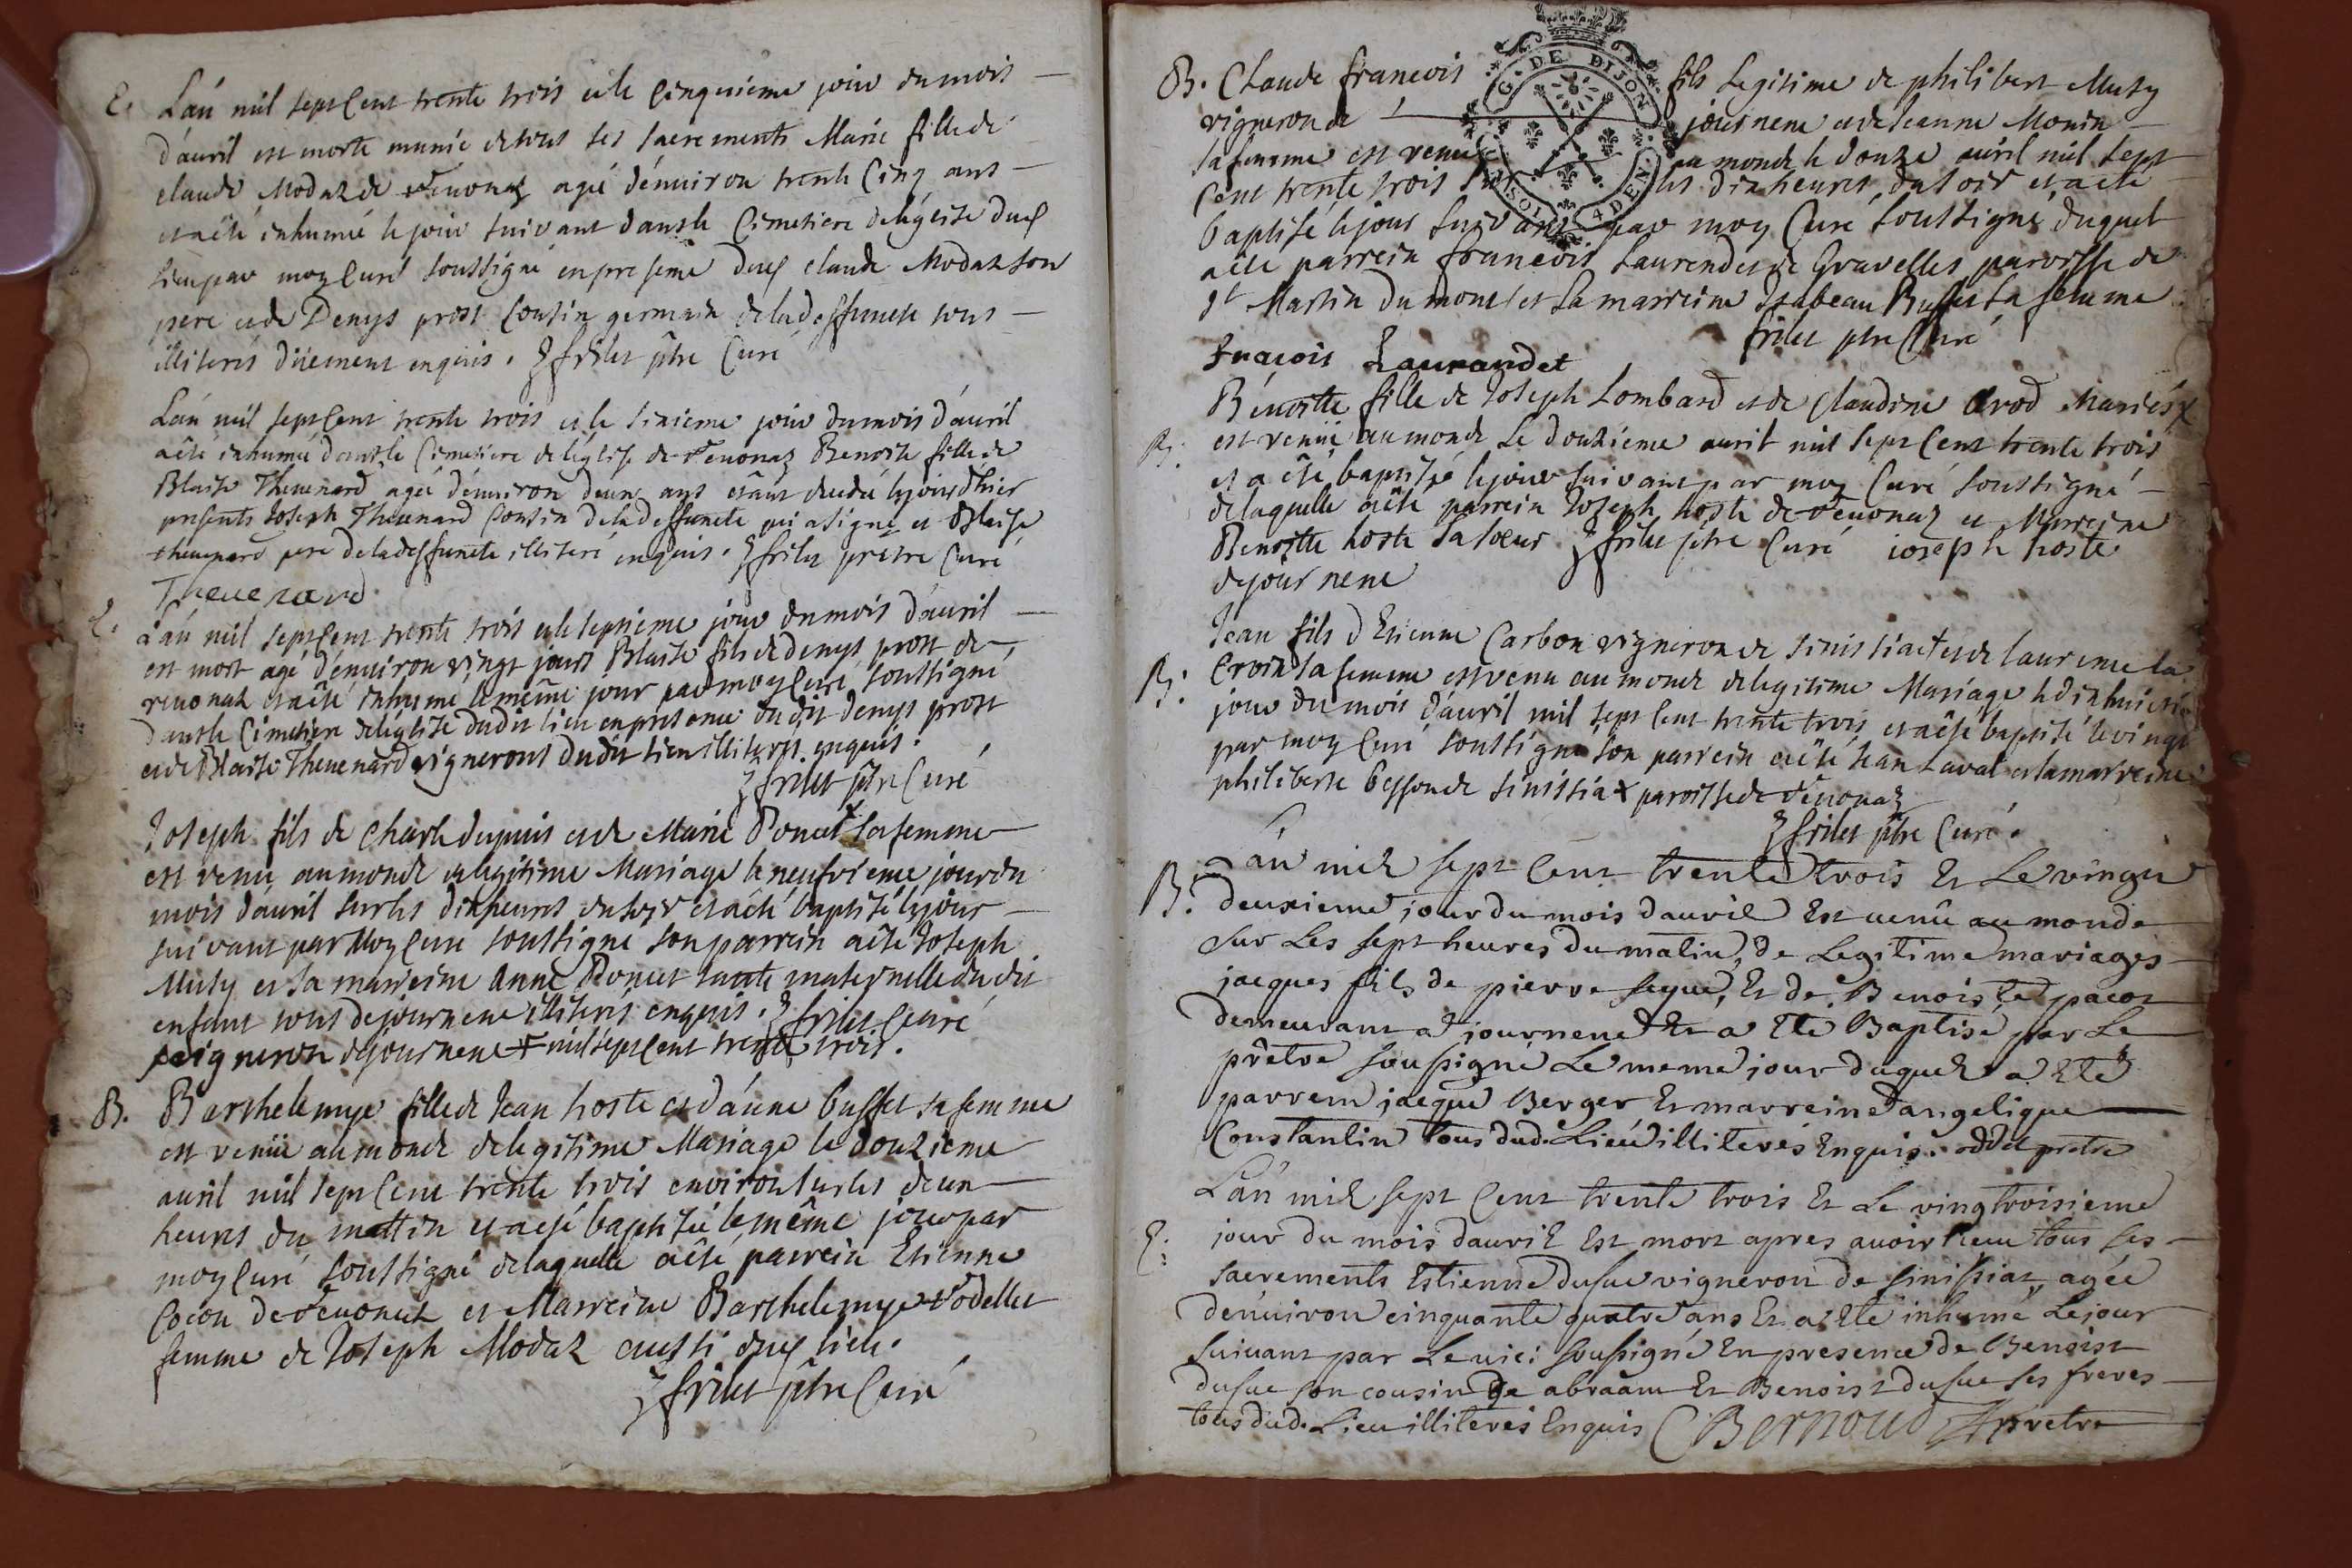 E. L'an mil sept Cent trente trois et le Cinquieme jour du mois
d'avril est morte munie de tous ses sacrements Marie fille de
claude Modaz de Veuonaz agée d'environ trente Cinq ans
et a été inhumée le jour suivant dans le Cimetiere de l'église dud
lieu par moy Curé soussigné en presence dud claude Modaz son
pere et de Denys prost Cousin germain de la deffuncte tous
illiterés düement enquis. frilet ptre Curé
L'an mil sept Cent trente trois et le sixieme jour du mois d'avril
a été inhumée dans le Cimetiere de l'église de Veuonaz Benoite fille de
Blaise Thevenard agée d'environ deux ans etant decedée le jour d'hier
presents Joseph Thevenard Cousin de la deffuncte qui a signé et Blaise
thevenard pere de la deffuncte illiteré enquis. frilet prêtre Curé
Thevenard
E. L'an mil sept Cent trente trois et le septieme jour du mois d'avril
est mort agé d'environ vingt jours Blaise fils de denys prost de
veuonaz et a été inhumé le même jour par moy Curé soussigné
dans le Cimetiere de l'église dudit lieu en presence dudit denys prost
et de Blaise Thevenard vignerons dudit lieu illiterés enquis.
frilet ptre Curé
Joseph fils de Charle dupuis et de Marie Poncet sa femme
est venu au monde de legitime Mariage le neufvieme jour du
mois d'avril sur les dix heures du soir et a été baptisé le jour
suivant par Moy Curé soussigné son parrein a été Joseph
Muty et sa marreine Anne Poncet tante maternelle dudit
enfant tous de journene illiterés enquis. frilet Curé
vigneron de journene + mil sept Cent trente trois.
B. Barthelemye fille de Jean hoste et d'anne buffet sa femme
est venüe au monde de legitime Mariage le douzieme
avril mil sept Cent trente trois environ sur les deux
heures du mattin et a esté baptisée le même jour par
moy Curé soussigné de laquelle a été parrein Etienne
Cocon de Veuonaz et Marreine Barthelemye Vodellet
femme de Joseph Modaz aussi dud lieu.
frilet ptre Curé
B. Claude francois fils legitime de philibert Muty
vigneron de journene et de Jeanne Monin
sa femme est venu au monde le douze avril mil sept
Cent trente trois sur les dix heures du soir et a été
baptisé le jour suivant par moy Curé soussigné duquel
a été parrein francois Laurendet de Gravelles paroisse de
St Martin du mont et la marreine Isabeau Buffet sa femme
frilet ptre Curé
fracois Laurandet
G. DE DIJON
SOL 4 DEN.
Bénoitte fille de Joseph Lombard et de Claudine Crod Mariés X
B. est venüe au monde le douzieme avril mil sept Cent trente trois
et a été baptisée le jour suivant par moy Curé soussigné
de laquelle a été parrein Joseph hoste de Veuonaz et Marreine
Benoitte hoste sa soeur frilet ptre Curé ioseph hoste
de journene
Jean fils d'Etienne Carbon vigneron de sinissiat et de laurence la
B. Croix sa femme est venu au monde de legitime Mariage le dixhuitie
jour du mois d'avril mil sept Cent trente trois et a esté baptisé le vingt
par moy Curé soussigné son parrein a été Jean Laval et la marreine
philiberte bessonde sinissiat paroisse de Veuonaz
frilet ptre Curé.
L'an mil sept Cent trente trois Et Le vingt
B. deuxieme jour du mois davril Est venu au monde
sur Les sept heures du matin, de Legitime mariages
jacques fils de pierre seque, Et de Benoiste pacot
demeurant a journene Et a Eté Baptisé par Le
prêtre soussigné Le meme jour duquel a Eté
parrein jacque Berger Et marreine angelique
Constantin tous dud. Lieu illiterés Enquis. prêtre
L'an mil sept Cent trente trois Et Le vingtroisieme
E. jour du mois davril Est mort apres avoir Recu tous ses
sacrements Estienne dusuc vigneron de sinissiat, agée
denviron cinquante quatre ans Et a Eté inhumé Le jour
suivant par Le vic: soussigné En presence de Benoist
dusuc son cousin de abraam Et Benoist dusuc ses freres
tous dud. Lieu illiterés Enquis Bernoud prêtre